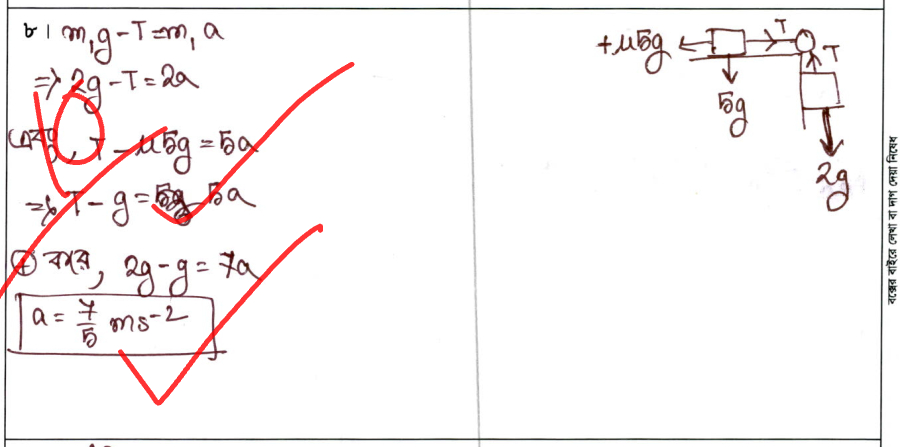 ৮। m₁g-T=m₁a
=> 2g-T=2a
এবং, T-μ5g=5a
=> T-g=5a
⊕ করে, 2g-g=7a
a=7/5 ms⁻²
+μ5g
T
T
5g
2g
বক্সের বাইরে লেখা বা দাগ দেয়া নিষেধ